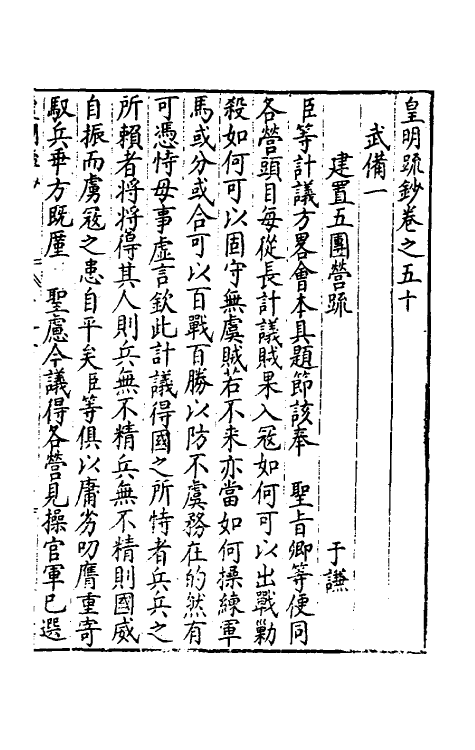 皇明疏鈔卷之五十
武備一
建置五團營疏 于謙
臣等計議方畧會本具題節該奉 聖旨卿等便同
各營頭目每從長計議賊果入寇如何可以出戰勦
殺如何可以固守無虞賊若不来亦當如何操練軍
馬或分或合可以百戰百勝以防不虞務在的然有
可憑恃毋事虛言欽此計議得國之所恃者兵兵之
所賴者将将得其人則兵無不精兵無不精則國威
自振而虜寇之患自平矣臣等俱以庸劣叨膺重寄
馭兵乖方既厪 聖慮今議得各營見操官軍已選